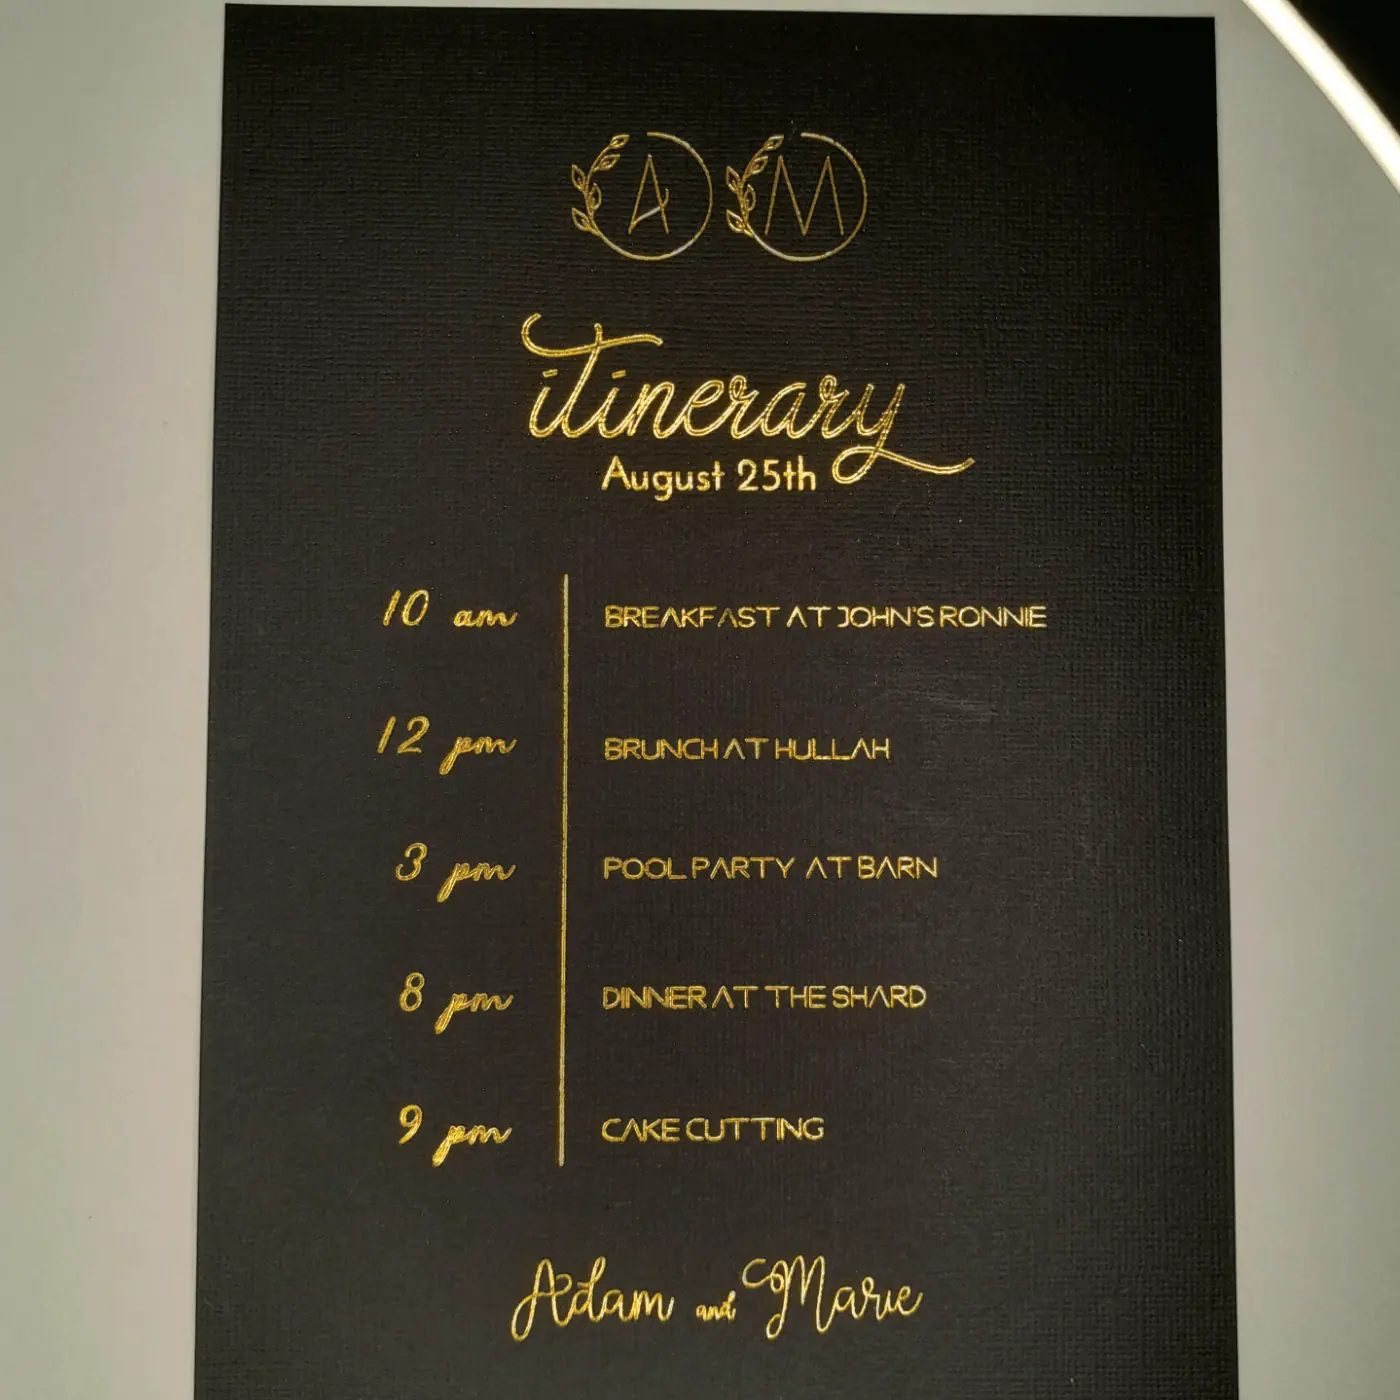 A M
itinerary
August 25th
10 am BREAKFAST AT JOHN'S RONNIE
12 pm BRUNCH AT HULLAH
3 pm POOL PARTY AT BARN
8 pm DINNER AT THE SHARD
9 pm CAKE CUTTING
Adam and Marie